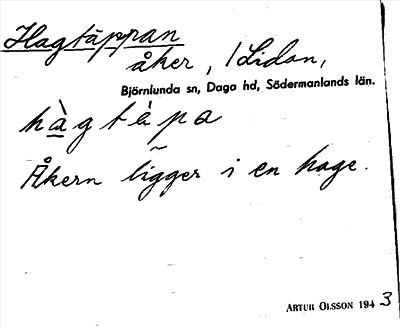 Hagtäppan
åker, /Lidan,
Björnlunda sn, Daga hd, Södermanlands län.
hàgtàpa
Åkern ligger i en hage.
ARTUR OLSSON 1943